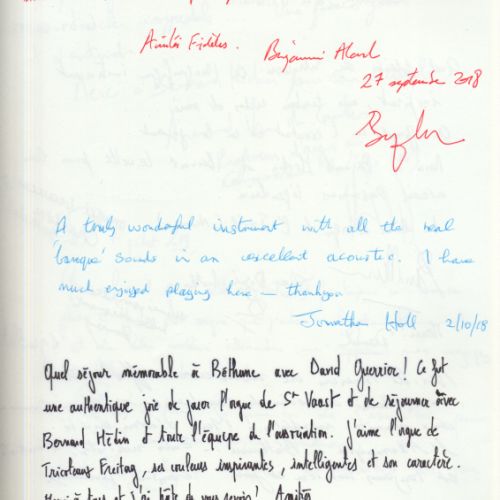 Amitiés Fidèles. Benjamin Alard
27 septembre 2018
A truly wonderful instrument with all the real
'baroque' sounds in an excellent acoustic. I have
much enjoyed playing here — thankyou
Jonathan Holl 2/10/18
Quel séjour mémorable à Béthune avec David Guerrier! Ce fut
une authentique joie de jouer l'orgue de St Vaast et de séjourner avec
Bernard Hédin et toute l'équipe de l'association. J'aime l'orgue de
Tricoteaux Freitag, ses couleurs inspirantes, intelligentes et son caractère.
Merci à tous et j'ai hâte de vous revoir! Amitiés